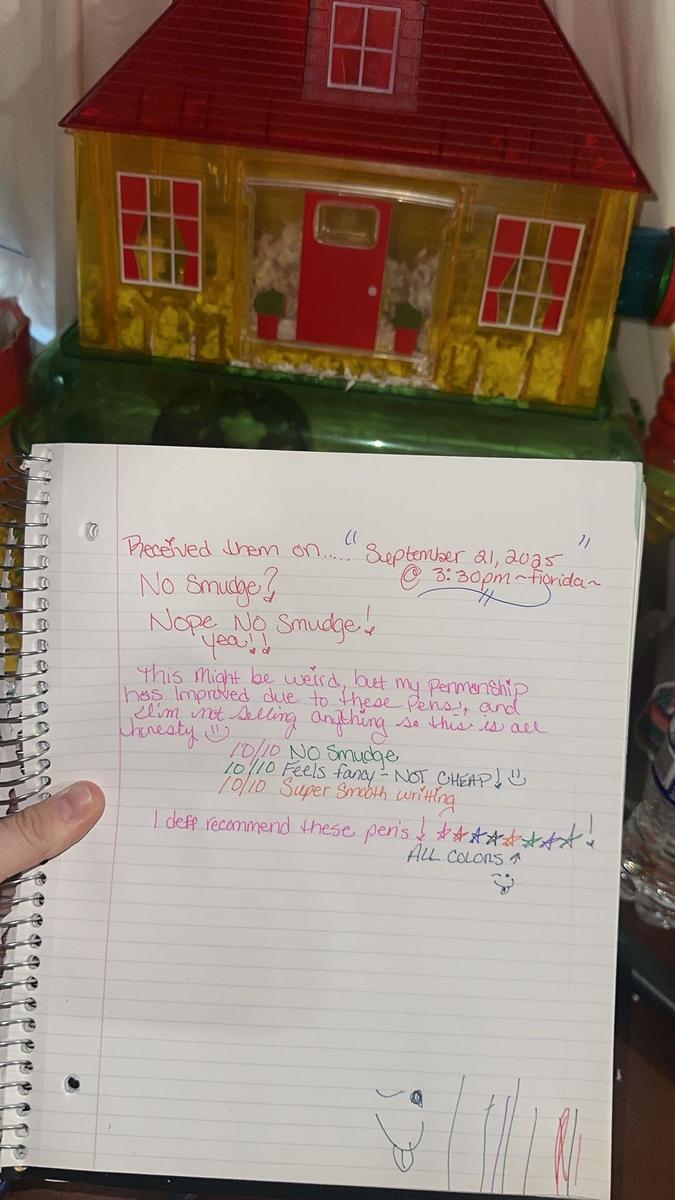 Received them on..... " September 21, 2025 "
@ 3:30pm ~Florida~
No Smudge?
Nope No Smudge!
yea!!
This might be weird, but my penmanship
has improved due to these pens, and
I'm not selling anything so this is all
honesty
10/10 No Smudge
10/10 Feels fancy - NOT CHEAP!
10/10 Super Smooth writing
I deff recommend these pen's !
ALL COLORS